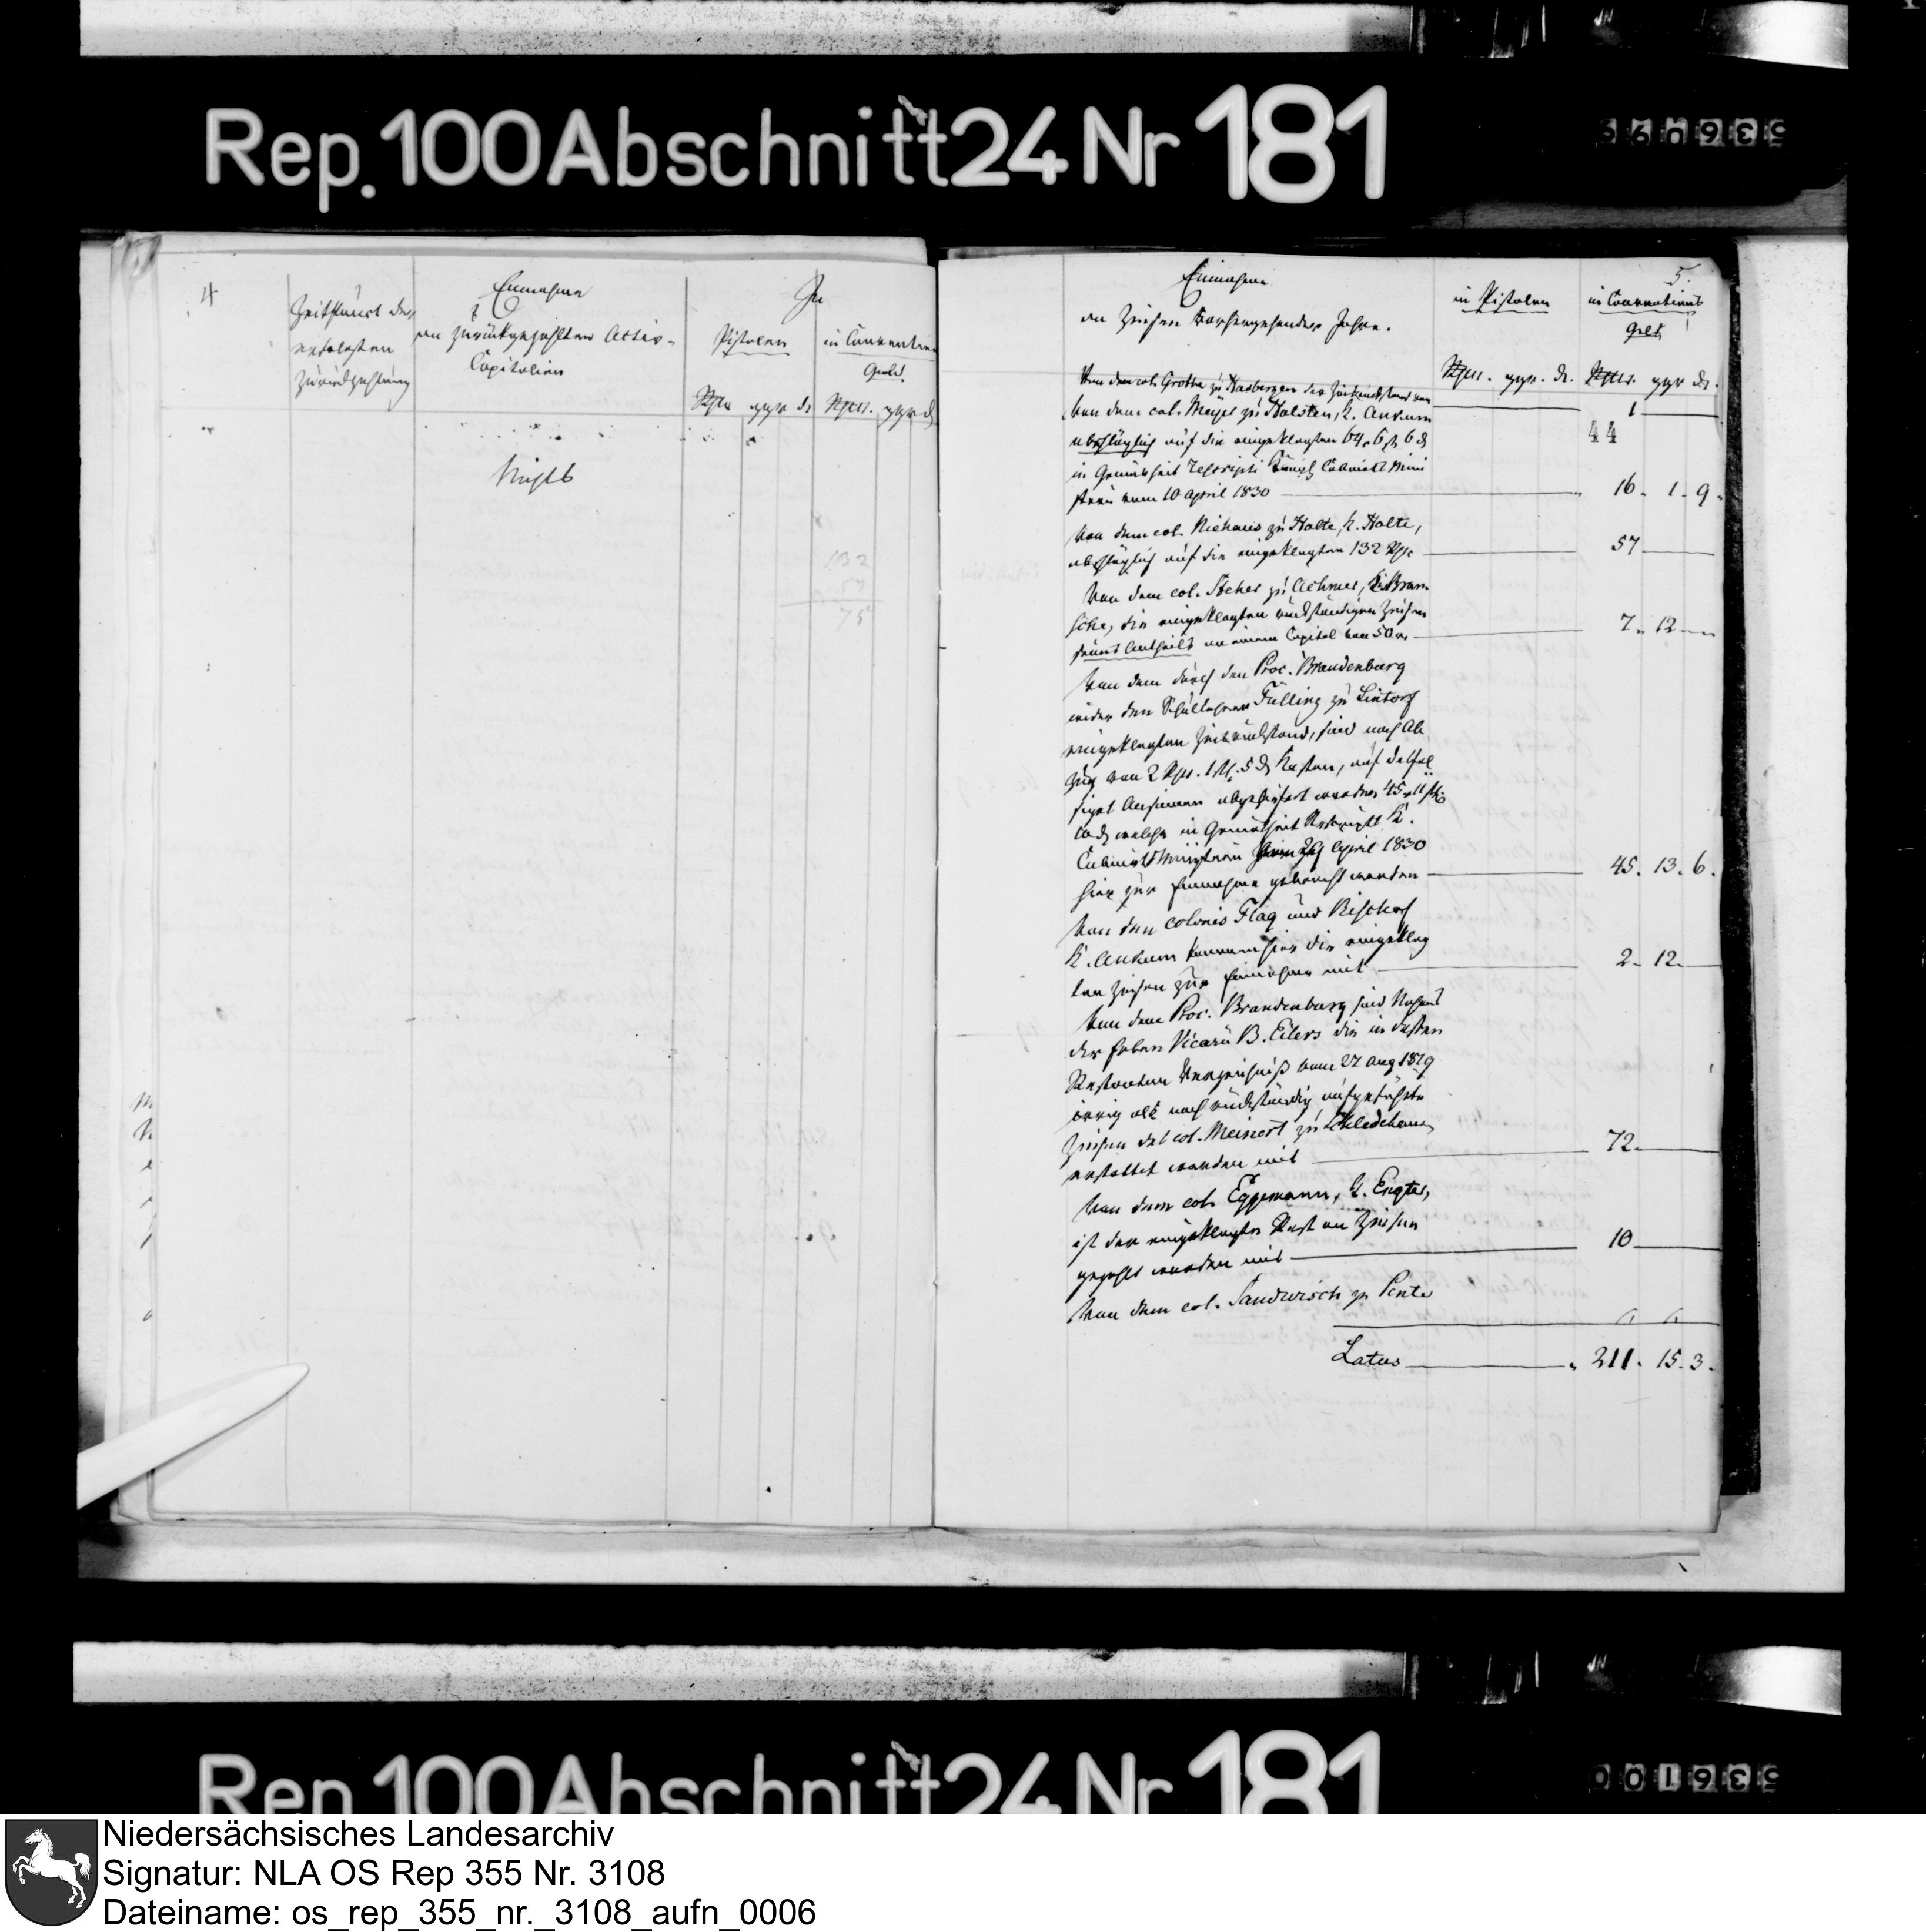 Rep. 100 Abschnitt 24 Nr 181
4
Zeitpunct der
erfolgten
Zurückzahlung
Einnahme
an zurückgezahlten Activ-
Capitalien
In
Pistolen
in Convention
Geld.
Rthlr ggr d. Rthlr. ggr d
Nichts
132
57
75
5.
Einnahme
an Zinsen vorhergehender Jahre.
in Pistolen
in Conventions
Geld
Rthlr. ggr. d. Rthlr. ggr d.
Von dem col. Grothe zu Hasbergen der Zinsrückstand von
1
Von dem col. Meyer zu Holsten, K. Ankum
44
abschläglich auf die eingeklagten 64 r 6 ß 6 d
in Gemäsheit rescripti Königl Cabinets Mini
sterii vom 10 April 1830
16. 1. 9.
Von dem col. Niehaus zu Holte, K. Holte,
abschläglich auf die eingeklagten 132 Rthlr
57
Von dem col. Stehes zu Achmer, K. Bram
sche, die eingeklagten rückständigen Zinsen
seines Antheils an einem Capital von 50 r.
7. 12
Von dem durch den Proc. Brandenburg
wider den Schullehrer Fülling zu Lintorf
eingeklagten Zinsrückstand, sind nach Ab
zug von 2 Rthlr. 1 ß. 5 d Kosten, auf
abgeliefert worden 45 r 11 ß
welche in Gemäsheit Rescripts K.
Cabinets Ministerii April 1830
hier zur Einnahme gebracht werden
45. 13. 6.
Von den colonis Flag und Bischof
K. Ankum kommen hier die eingeklag
ten Zinsen zur Einnahme mit
2. 12.
Von dem Proc. Brandenburg sind Nahmens
der Erben Vicarii B. Eilers die in dessen
Restanten Verzeichniß vom 27 Aug 1829
irrig als noch rückständig aufgeführte
Zinsen des col. Meinert zu Schledehausen
erstattet worden mit
72.
Von dem col. Eggemann, K. Engter,
ist der eingeklagte Rest an Zinsen
gezahlt worden mit
10
Von dem col. Sandwisch zu Pente
Latus
211. 15. 3.
Rep. 100 Abschnitt 24 Nr 181
Niedersächsisches Landesarchiv
Signatur: NLA OS Rep 355 Nr. 3108
Dateiname: os_rep_355_nr._3108_aufn_0006